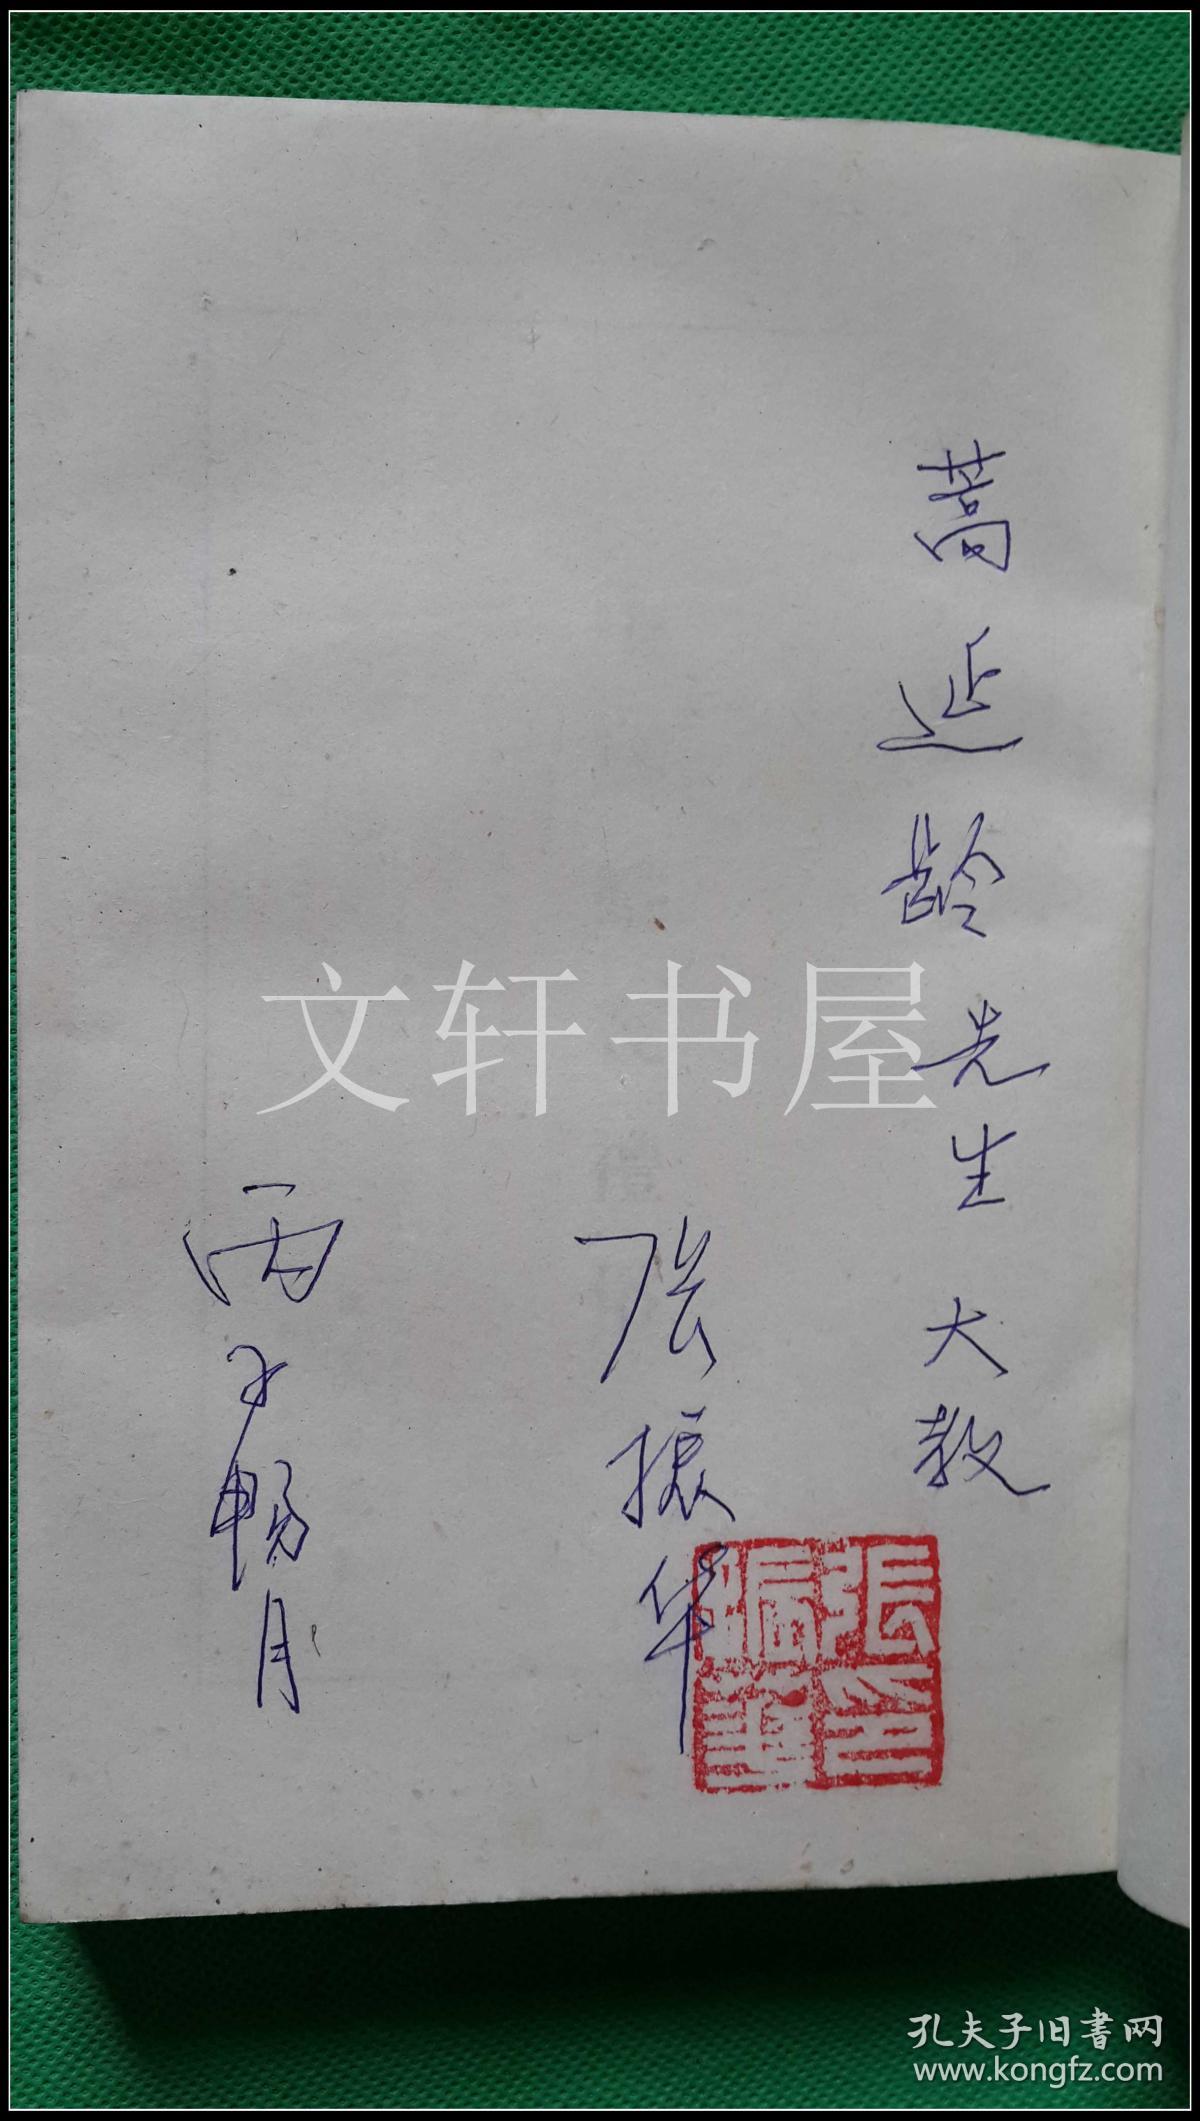 蒿延龄先生 大教
张振华
丙子畅月
張振華印
文轩书屋
孔夫子旧书网
www.kongfz.com